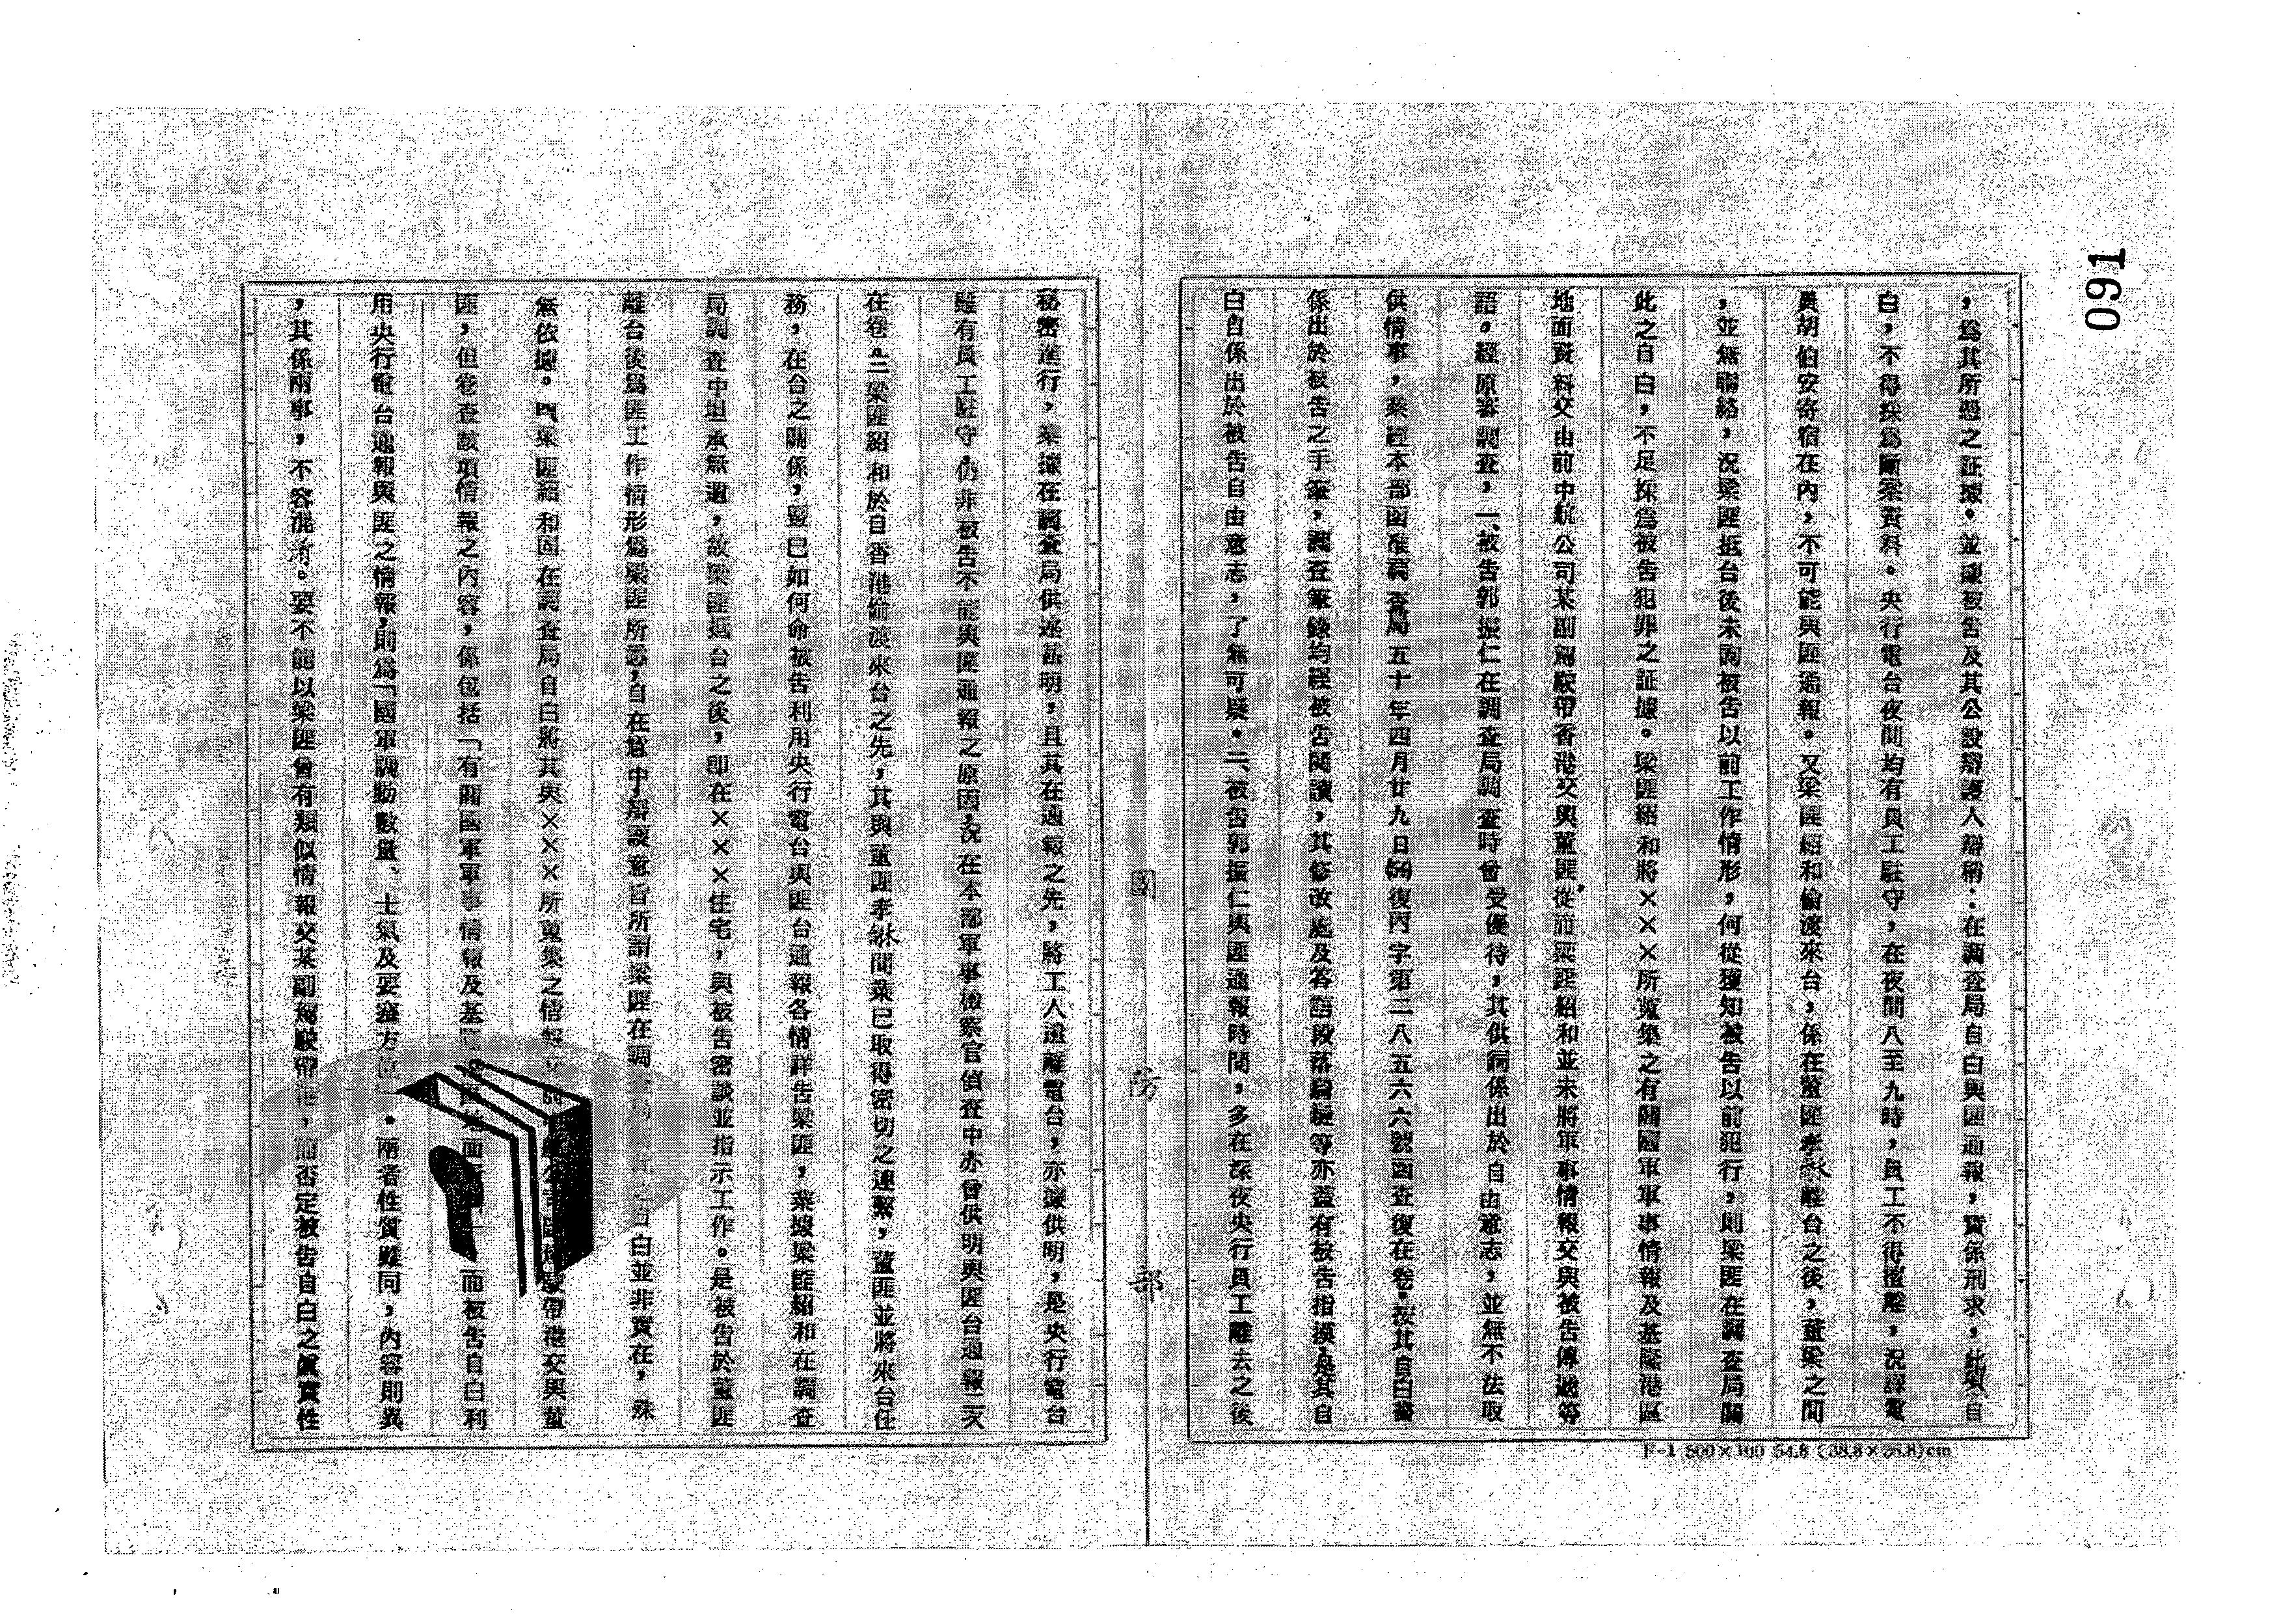 091
，為其所憑之証據。並據被告及其公設辯護人辯稱：在調查局自白與匪通報，實係刑求，此項自
白，不得採為斷罪資料。央行電台夜間均有員工駐守，在夜間八至九時，員工不得擅離，況譯電
員胡伯安寄宿在內，不可能與匪通報。又梁匪紹和偷渡來台，係在董匪孝離台之後，董梁之間
，並無聯絡，況梁匪抵台後未詢被告以前工作情形，何從獲知被告以前犯行，則梁匪在調查局關
此之自白，不足採為被告犯罪之証據。梁匪紹和將×××所蒐集之有關國軍軍事情報及基隆港區
地面資料交由前中航公司某副駕駛帶香港交與董匪從而梁匪紹和並未將軍事情報交與被告傳遞等
語。經原審調查，一、被告郭振仁在調查局調查時曾受優待，其供詞係出於自由意志，並無不法取
供情事，業經本部函准調查局五十年四月廿九日(50)復丙字第二八五六六號函查復在卷，按其自白書
係出於被告之手筆，調查筆錄均經被告閱讀，其修改處及答語段落騎縫等亦蓋有被告指模，是其自
白自係出於被告自由意志，了無可疑。二、被告郭振仁與匪通報時間，多在深夜央行員工離去之後
國防部
F-1 500×100 54.8 (38.8×26.8)cm
秘密進行，業據在調查局供述甚明，且其在通報之先，將工人遣離電台，亦據供明，是央行電台
雖有員工駐守，仍非被告不能與匪通報之原因，況在本部軍事檢察官偵查中亦曾供明與匪台通報二次
在卷。三梁匪紹和於自香港偷渡來台之先，其與董匪孝間業已取得密切之連繫，董匪並將來台任
務，在台之關係，暨已如何命被告利用央行電台與匪台通報各情詳告梁匪，業據梁匪紹和在調查
局調查中坦承無遺，故梁匪抵台之後，即在×××住宅，與被告密談並指示工作。是被告於董匪
離台後為匪工作情形為梁匪所悉，自在意中辯護意旨所謂梁匪在調自白並非實在，殊
無依據。四梁匪紹和固在調查局自白將其與×××所蒐集之情報駛帶港交與董
匪，但卷查該項情報之內容，係包括「有關國軍軍事情報及基地面」而被告自白利
用央行電台通報與匪之情報，則為「國軍調動數量、士氣及要塞方位」。兩者性質雖同，內容則異
，其係兩事，不容混淆。要不能以梁匪曾有類似情報交某副駕駛帶港，而否定被告自白之眞實性